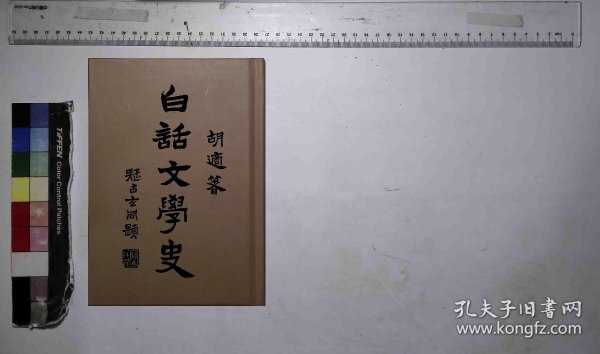 胡適篹
白話文學史
疑古玄同題
TIFFEN Color Control Patches
孔夫子旧书网
www.kongfz.com